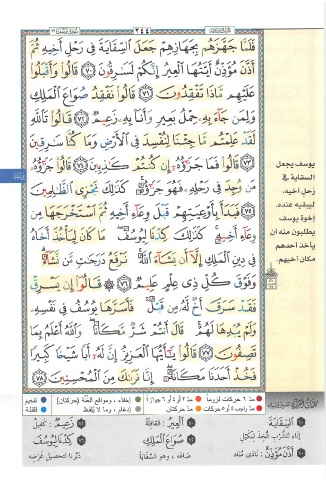 ٢٤٤
فَلَمَّا جَهَّزَهُم بِجَهَازِهِمْ جَعَلَ ٱلسِّقَايَةَ فِى رَحْلِ أَخِيهِ ثُمَّ
أَذَّنَ مُؤَذِّنٌ أَيَّتُهَا ٱلْعِيرُ إِنَّكُمْ لَسَٰرِقُونَ ٧٠ قَالُوا۟ وَأَقْبَلُوا۟
عَلَيْهِم مَّاذَا تَفْقِدُونَ ٧١ قَالُوا۟ نَفْقِدُ صُوَاعَ ٱلْمَلِكِ
وَلِمَن جَآءَ بِهِۦ حِمْلُ بَعِيرٍ وَأَنَا۠ بِهِۦ زَعِيمٌ ٧٢ قَالُوا۟ تَٱللَّهِ
لَقَدْ عَلِمْتُم مَّا جِئْنَا لِنُفْسِدَ فِى ٱلْأَرْضِ وَمَا كُنَّا سَٰرِقِينَ
٧٣ قَالُوا۟ فَمَا جَزَٰٓؤُهُۥٓ إِن كُنتُمْ كَٰذِبِينَ ٧٤ قَالُوا۟ جَزَٰٓؤُهُۥ
مَن وُجِدَ فِى رَحْلِهِۦ فَهُوَ جَزَٰٓؤُهُۥ كَذَٰلِكَ نَجْزِى ٱلظَّٰلِمِينَ
٧٥ فَبَدَأَ بِأَوْعِيَتِهِمْ قَبْلَ وِعَآءِ أَخِيهِ ثُمَّ ٱسْتَخْرَجَهَا مِن
وِعَآءِ أَخِيهِ كَذَٰلِكَ كِدْنَا لِيُوسُفَ مَا كَانَ لِيَأْخُذَ أَخَاهُ
فِى دِينِ ٱلْمَلِكِ إِلَّآ أَن يَشَآءَ ٱللَّهُ نَرْفَعُ دَرَجَٰتٍ مَّن نَّشَآءُ
وَفَوْقَ كُلِّ ذِى عِلْمٍ عَلِيمٌ ٧٦ قَالُوٓا۟ إِن يَسْرِقْ
فَقَدْ سَرَقَ أَخٌ لَّهُۥ مِن قَبْلُ فَأَسَرَّهَا يُوسُفُ فِى نَفْسِهِۦ
وَلَمْ يُبْدِهَا لَهُمْ قَالَ أَنتُمْ شَرٌّ مَّكَانًا وَٱللَّهُ أَعْلَمُ بِمَا
تَصِفُونَ ٧٧ قَالُوا۟ يَٰٓأَيُّهَا ٱلْعَزِيزُ إِنَّ لَهُۥٓ أَبًا شَيْخًا كَبِيرًا
فَخُذْ أَحَدَنَا مَكَانَهُۥٓ إِنَّا نَرَىٰكَ مِنَ ٱلْمُحْسِنِينَ ٧٨
يوسف يجعل
السقاية في
رحل أخيه،
ليبقيه عنده.
إخوة يوسف
يطلبون منه أن
يأخذ أحدهم
مكان أخيهم.
مدّ ٦ حركات لزوماً
مدّ ٢ أو ٤ أو ٦ جوازاً
إخفاء، ومواقع الغُنَّة (حركتان)
تفخيم
مدّ واجب ٤ أو ٥ حركات
مدّ حركتان
إدغام، وما لا يُلفظ
قلقلة
السِّقَايَةَ
إناء للشُّرب اتُّخِذَ للكَيْل
أَذَّنَ مُؤَذِّنٌ: نادى مُنادٍ
الْعِيرُ: القافلة
صُوَاعَ الْمَلِكِ
صاعَه، وهو السِّقاية
زَعِيمٌ: كفيل
كِدْنَا لِيُوسُفَ
دبّرنا لتحصيل غرضه